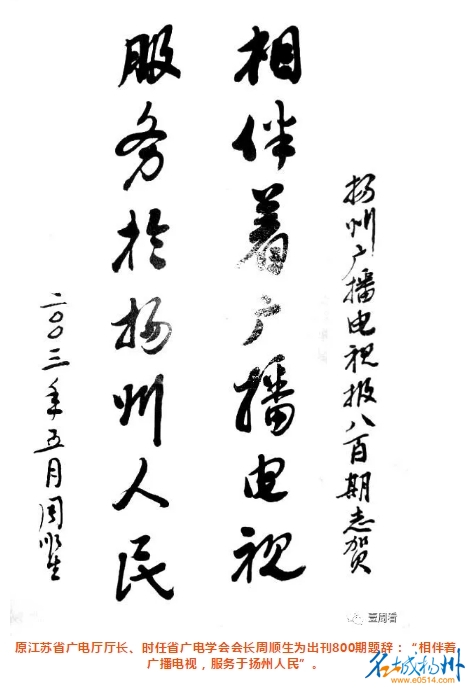 扬州广播电视报八百期志贺
相伴着广播电视
服务于扬州人民
二〇〇三年五月周顺生
壹周看
原江苏省广电厅厅长、时任省广电学会会长周顺生为出刊800期题辞：“相伴着
广播电视，服务于扬州人民”。
名城扬州
www.e0514.com